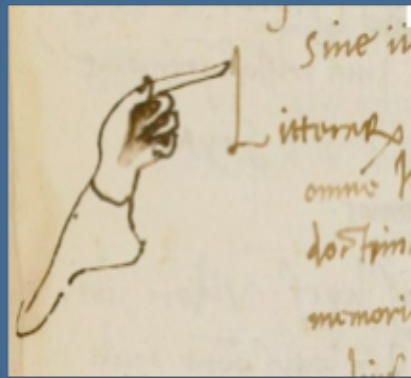 Sine
Litterarꝝ
omne
doctrin
memori